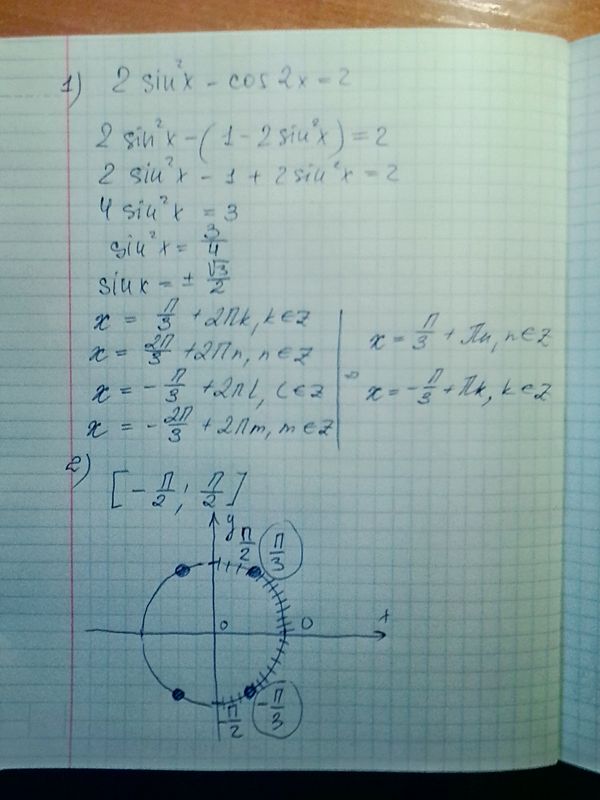 1) 2 sin²x - cos 2x = 2
2 sin²x - (1 - 2 sin²x) = 2
2 sin²x - 1 + 2 sin²x = 2
4 sin²x = 3
sin²x = 3/4
sin x = ± √3/2
x = π/3 + 2πk, k ∈ Z
x = 2π/3 + 2πn, n ∈ Z
x = -π/3 + 2πl, l ∈ Z
x = -2π/3 + 2πm, m ∈ Z
x = π/3 + πn, n ∈ Z
x = -π/3 + πk, k ∈ Z
2) [-π/2; π/2]
y
π/2
π/3
x
0
0
-π/2
-π/3